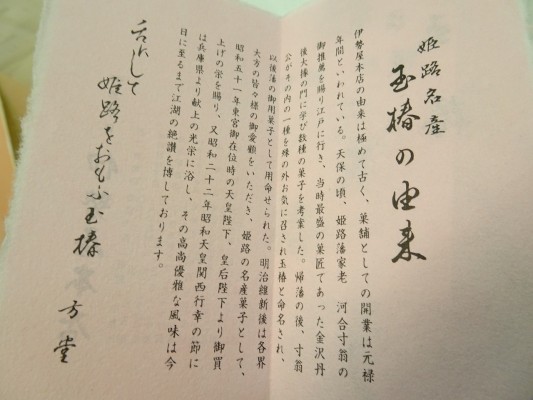 姫路名産
玉椿の由来
伊勢屋本店の由来は極めて古く、菓舗としての開業は元禄
年間といわれている。天保の頃、姫路藩家老 河合寸翁の
御推薦を賜り江戸に行き、当時最盛の菓匠であった金沢丹
後大椽の門に学び数種の菓子を考案した。帰藩の後、寸翁
公がその内の一種を殊の外お気に召され玉椿と命名され、
以後藩の御用菓子として用命せられた。明治維新後は各界
大方の皆々様の御愛顧をいただき、姫路の名産菓子として、
昭和五十一年東宮御在位時の天皇陛下、皇后陛下より御買
上げの栄を賜り、又昭和二十二年昭和天皇関西行幸の節に
は兵庫県より献上の光栄に浴し、その高尚優雅な風味は今
日に至るまで江湖の絶讃を博しております。
舌にして
姫路をおもふ玉椿
方堂